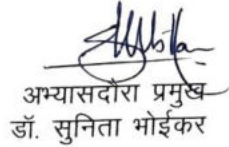 अभ्यासदौरा प्रमुख
डॉ. सुनिता भोईकर